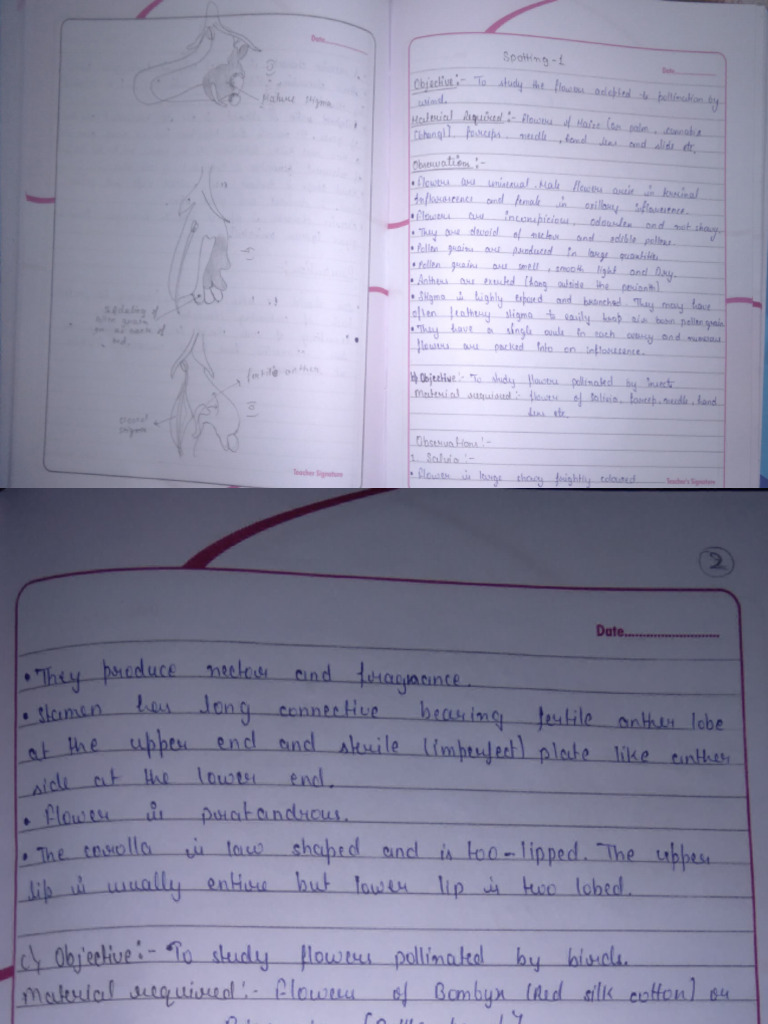 Date
mature stigma
fertile anther
Teacher Signature
Spotting-1
Date
Objective:- To study the flowers adapted to pollination by
wind.
Material Required:- flowers of Maize [or palm, cannabis
(bhang)] forceps, needle, hand lens and slide etc.
Observation:-
• flowers are unisexual. Male flowers arein in terminal
inflorescence and female in axillary inflorescence.
• flowers are inconspicious, and not showy.
• They are devoid of nector and edible pollen.
• Pollen grains are produced in large quantities
• Pollen grains are small, smooth light and Dry.
• Anthers are exerted (hang outside the perianth)
• Stigma is highly expord and branched. They may have
often feathery stigma to easily trap air born pollen grain
• They have a single ovule in each ovary and numerous
flowers are packed into an inflorescence.
b) Objective:- To study flowers pollinated by insects
Material required:- flower of Salvia, forcep, needle, hand
lens etc
Observation:-
1. Salvia:-
• Flower is large showy brightly coloured.
Teacher's Signature
2
Date
• They produce nector and fragnance.
• Stamen has long connective bearing fertile anther lobe
at the upper end and sterile (imperfect) plate like anther
side at the lower end.
• flower is protandrous.
• The corolla is law shaped and is too-lipped. The upper
lip is usually entire but lower lip is two lobed.
c) Objective:- To study flowers pollinated by birds.
Material required:- flowers of Bombyx (Red silk cotton] or